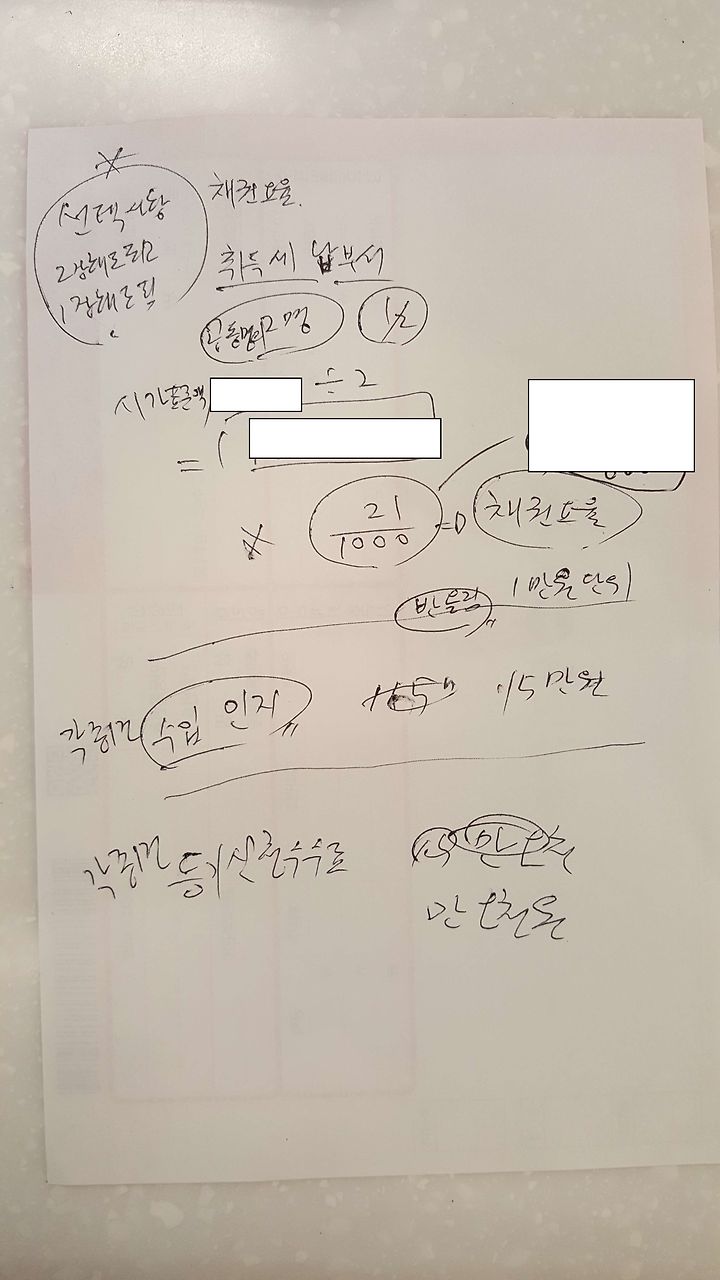 ※
선택사항
2장해도 되고
1장해도 됨
채권요율.
취득세 납부서
공동명의 2명 1/2
시가표준액 ÷ 2
= (
× 21/1000 → 채권요율
반올림 1만원 단위
각 1건 수입 인지 15만원
각 1건 등기신청수수료
만 오천원